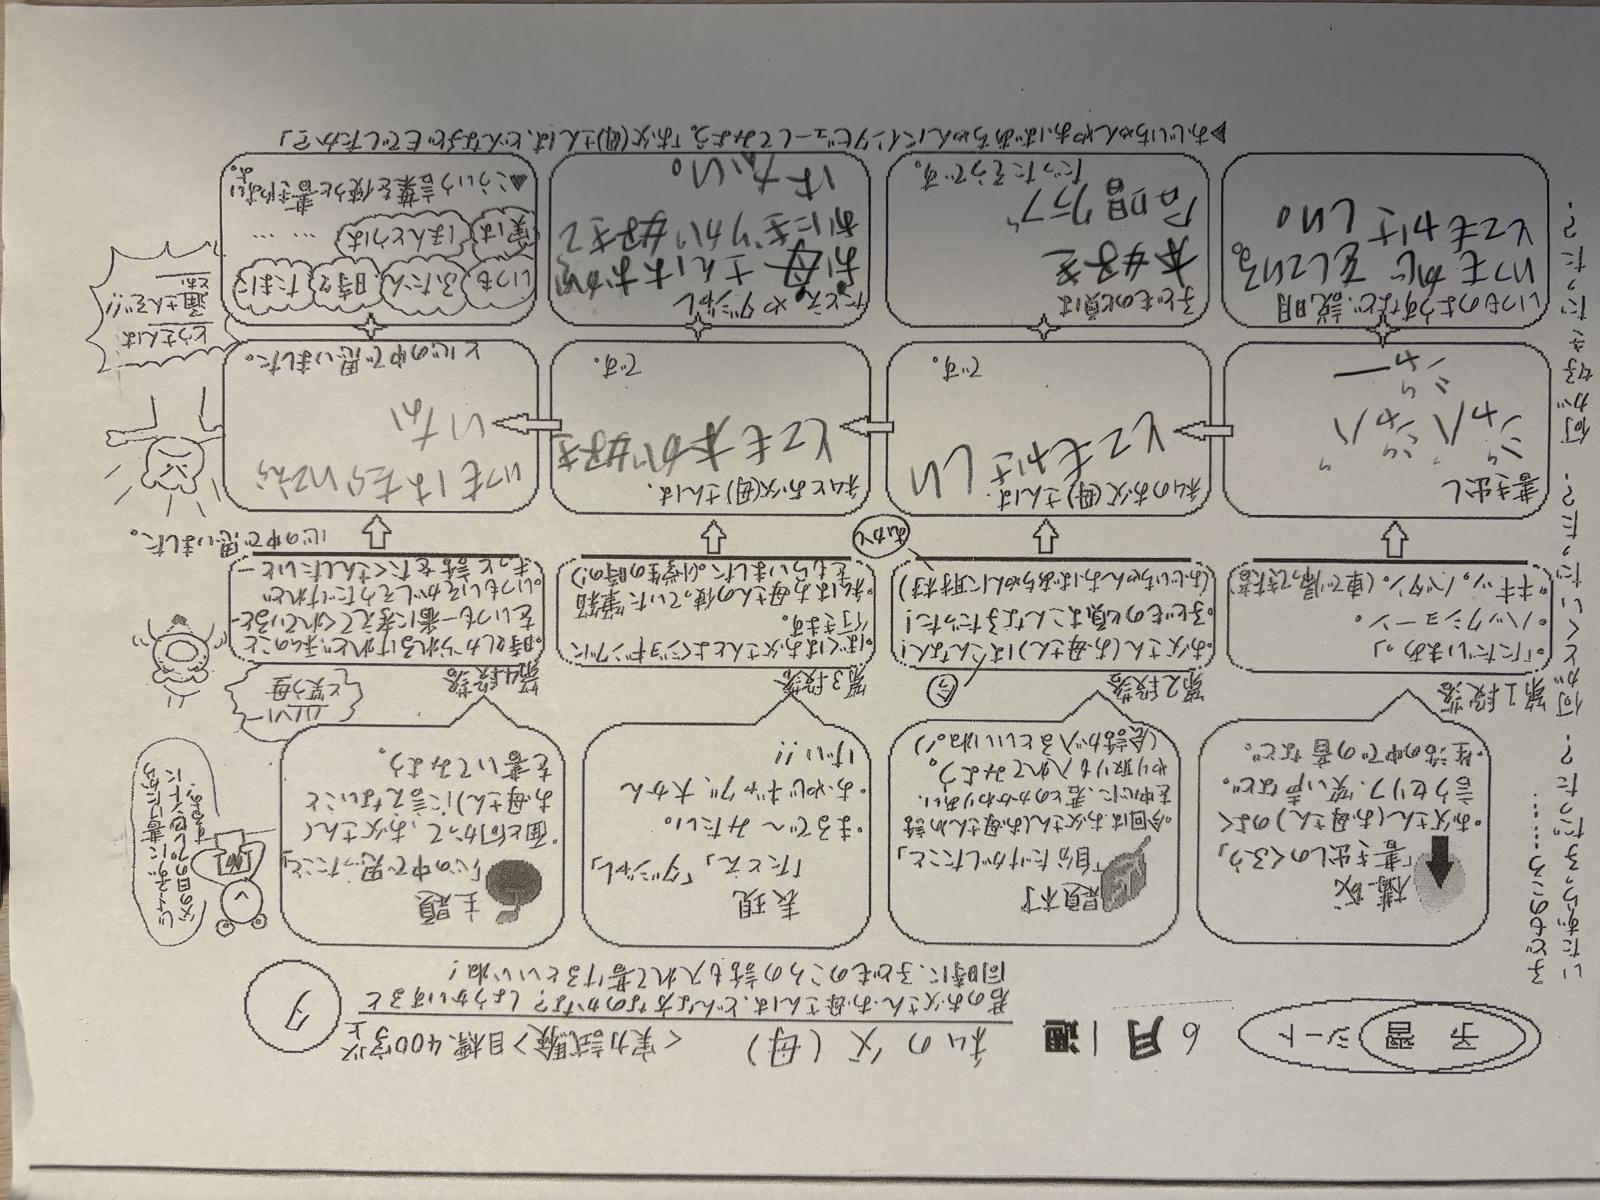 予習シート
6月1週
私の父(母)
<実力試験>目標、400字以上
タ
君のお父さん・お母さんは、どんな方なのかな?しょうかいすると
同時に、子どものころの話も入れて書けるといいね!
構成
「書き出しのくふう」
・お父さん(お母さん)のよく
言うセリフ、笑い声など。
・生活の中での音など。
題材
「自分だけがしたこと」
・今回はお父さん(お母さん)の話
を中心に、君とのかかわりあい、
やり取りも入れてみよう。
(会話が入るといいね!)
表現
「たとえ」「ダジャレ」
・まるで〜みたい。
・おやじギャグ、大かん
げい!!
主題
「心の中で思ったこと」
・面と向かって、お父さん(
お母さん)に言えないこと
を書いてみよう。
じょうずに書けたら
父の日のプレゼントに
するよ。
第1段落
・「ただいまあ。」
・ハックショーン。
・キキッ。バタン。(車で帰ってきた音)
第2段落
・お父さん(お母さん)はこんな人!
・子どもの頃はこんな子だった!
(おじいちゃん、おばあちゃんに取材)
今
むかし
第3段落
・ぼくはお父さんとよくジョギングに
行きます。
・私はお母さんの使っていた筆箱
をもらいました。(小学生の時の!)
第4段落
・時々しかられるけれど、私のこと
をいつも一番に考えてくれていると―
・いつもいそがしそうだけれど、
もっと話をたくさんしたいと―
心の中で思いました。
書き出し
ジャバジャバ
ジャー
私のお父(母)さんは、
とてもやさしい
です。
私とお父(母)さんは、
とても本が好き
です。
いつもはたらいてえら
いな
と心の中で思いました。
いつものようすなど、説明
いつもかじをしている。
とてもやさしい。
子どもの頃は
本好き
合唱クラブ
だったそうです。
たとえやダジャレ
お母さんはおかが
おにぎりかい好きで
はない。
いつも
ふだん
時々
たまに
実は
ほんとうは
… …
▲こういう言葉を使うと書きやすいよ。
とうさんは
通さんぞ!!
とお
▶おじいちゃんやおばあちゃんにインタビューしてみよう。「お父(母)さんは、どんな子どもでしたか?」
子どものころ……
いたずらっ子だった?
何がとくいだった?
何が好きだった?